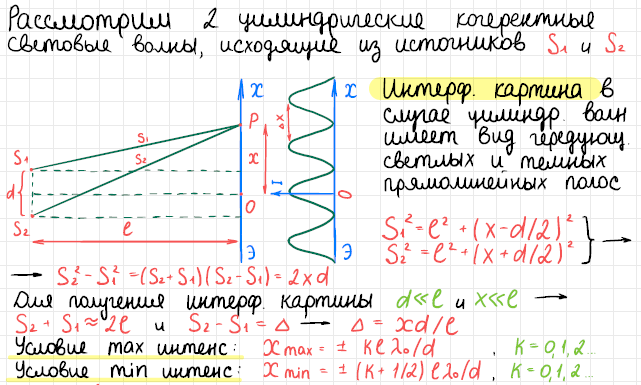 Рассмотрим 2 цилиндрические когерентные
световые волны, исходящие из источников S₁ и S₂
x
P
S₁
S₂
x
S₁
d
O
S₂
l
Э
x
Δx
I
O
Э
Интерф. картина в
случае цилиндр. волн
имеет вид чередующ.
светлых и темных
прямолинейных полос
S₁² = l² + (x-d/2)²
S₂² = l² + (x+d/2)² } →
→ S₂² - S₁² = (S₂+S₁)(S₂-S₁) = 2xd
Для получения интерф. картины d≪l и x≪l →
S₂ + S₁ ≈ 2l и S₂ - S₁ = Δ → Δ = xd/l
Условие max интенс: x max = ± klλ₀/d , k = 0,1,2...
Условие min интенс: x min = ± (k + 1/2) lλ₀/d , k = 0,1,2...